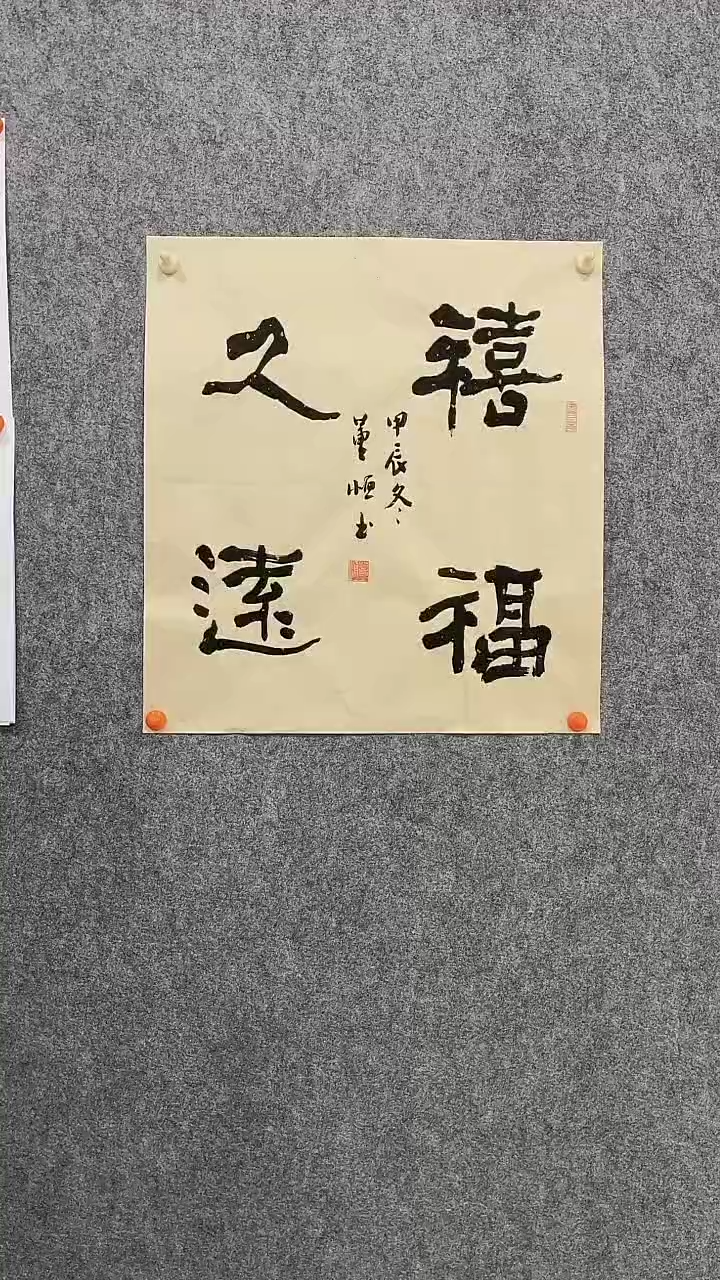 禧福
久遠
甲辰冬
董恒书